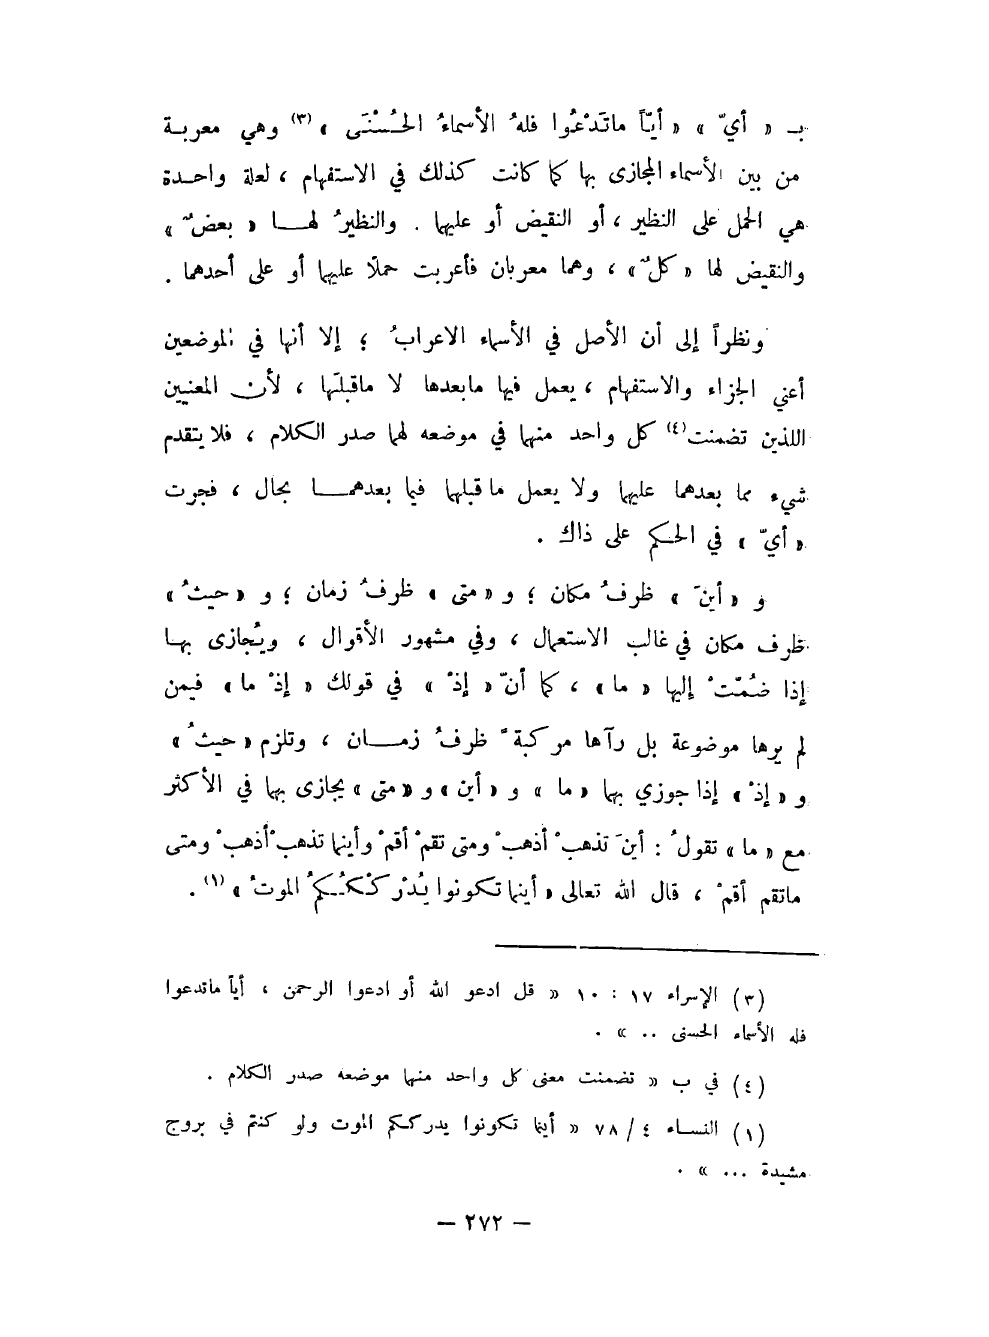 بـ « أيّ » « أيّاً ماتَدْعُوا فلهُ الأسماءُ الحُسْنَى » (٣) وهي معربـة
من بين الأسماء المجازى بها كما كانت كذلك في الاستفهام ، لعلة واحـدة
هي الحمل على النظير ، أو النقيض أو عليهما . والنظيرُ لهـــا « بعضٌ »
والنقيض لها « كلٌ » ، وهما معربان فأعربت حملًا عليهما أو على أحدهما .
ونظراً إلى أن الأصل في الأسماء الاعرابُ ؛ إلا أنها في الموضعين
أعني الجزاء والاستفهام ، يعمل فيها مابعدها لا ماقبلَها ، لأن المعنيين
اللذين تضمنت (٤) كل واحد منهما في موضعه لهما صدر الكلام ، فلا يتقدم
شيء مما بعدهما عليهما ولا يعمل ماقبلهما فيما بعدهمـــا بحال ، فجرت
« أيّ » في الحكم على ذاك .
و « أينَ » ظرفُ مكان ؛ و « متى » ظرفُ زمان ؛ و « حيثُ »
ظرف مكان في غالب الاستعمال ، وفي مشهور الأقوال ، ويُجازى بهـا
إذا ضُمّتْ إليها « ما » ، كما أنّ « إذْ » في قولك « إذْ ما » فيمن
لم يرها موضوعة بل رآها مركبةً ظرفُ زمـــان ، وتلزم « حيثُ »
و « إذْ » إذا جوزي بهما « ما » و « أين » و « متى » يجازى بهما في الأكثر
مع « ما » تقولُ : أينَ تذهبْ أذهبْ ومتى تقمْ أقمْ وأينما تذهبْ أذهبْ ومتى
ماتقم أقمْ ، قال الله تعالى « أينما تكونوا يُدْرِكْكُمُ الموتُ » (١) .
(٣) الإسراء ١٧ : ١٠ « قل ادعو الله أو ادعوا الرحمن ، أياً ماتدعوا
فله الأسماء الحسنى .. » .
(٤) في ب « تضمنت معنى كل واحد منهما موضعه صدر الكلام .
(١) النسـاء ٤ / ٧٨ « أينما تكونوا يدرككم الموت ولو كنتم في بروج
مشيدة ... » .
— ٢٧٢ —